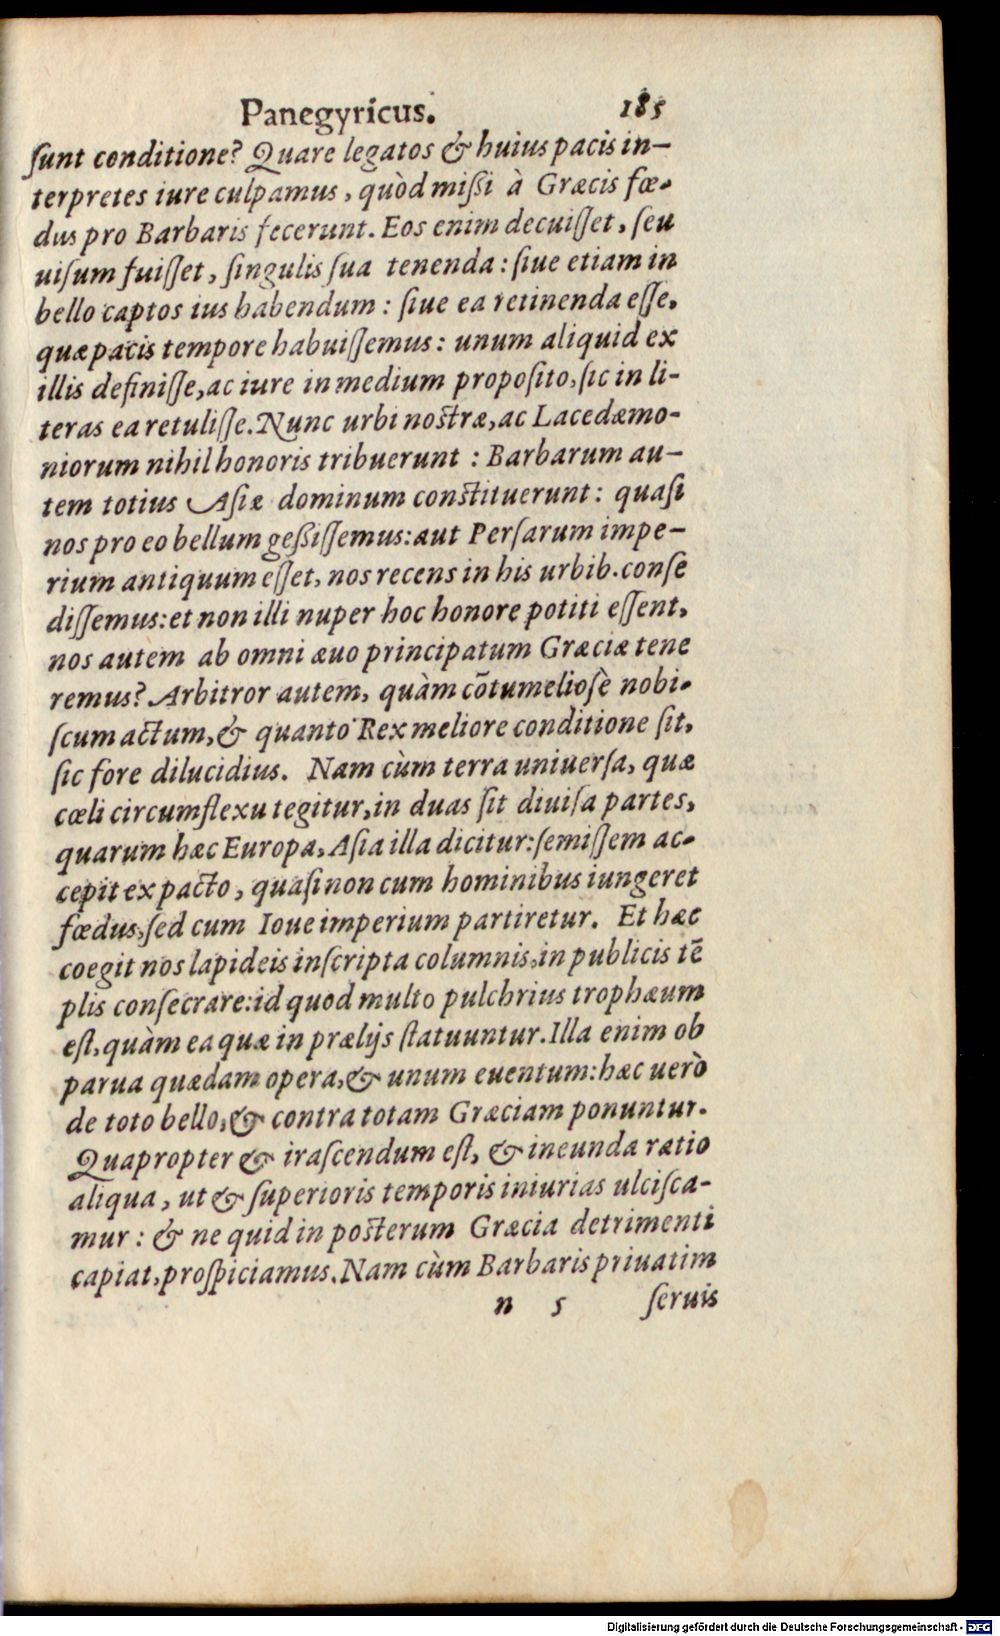 Panegyricus. 185
ſunt conditione? Quare legatos & huius pacis in-
terpretes iure culpamus, quòd mißi à Græcis fœ-
dus pro Barbaris fecerunt. Eos enim decuiſſet, ſeu
uiſum fuiſſet, ſingulis ſua tenenda: ſiue etiam in
bello captos ius habendum: ſiue ea retinenda eſſe,
quæ pacis tempore habuiſſemus: unum aliquid ex
illis definiſſe, ac iure in medium propoſito, ſic in li-
teras ea retuliſſe. Nunc urbi noſtræ, ac Lacedæmo-
niorum nihil honoris tribuerunt: Barbarum au-
tem totius Aſiæ dominum conſtituerunt: quaſi
nos pro eo bellum geßiſſemus: aut Perſarum impe-
rium antiquum eſſet, nos recens in his urbib. conſe
diſſemus: et non illi nuper hoc honore potiti eſſent,
nos autem ab omni æuo principatum Græciæ tene
remus? Arbitror autem, quàm cõtumelioſè nobi-
ſcum actum, & quanto Rex meliore conditione ſit,
ſic fore dilucidius. Nam cùm terra uniuerſa, quæ
cœli circumflexu tegitur, in duas ſit diuiſa partes,
quarum hæc Europa, Aſia illa dicitur: ſemiſſem ac-
cepit ex pacto, quaſi non cum hominibus iungeret
fœdus, ſed cum Ioue imperium partiretur. Et hæc
coegit nos lapideis inſcripta columnis, in publicis tē
plis conſecrare: id quod multo pulchrius trophæum
eſt, quàm ea quæ in prælijs ſtatuuntur. Illa enim ob
parua quædam opera, & unum euentum: hæc uerò
de toto bello, & contra totam Græciam ponuntur.
Quapropter & iraſcendum eſt, & ineunda ratio
aliqua, ut & ſuperioris temporis iniurias ulciſca-
mur: & ne quid in poſterum Græcia detrimenti
capiat, proſpiciamus. Nam cùm Barbaris priuatim
n 5 ſeruis
Digitalisierung gefördert durch die Deutsche Forschungsgemeinschaft - DFG